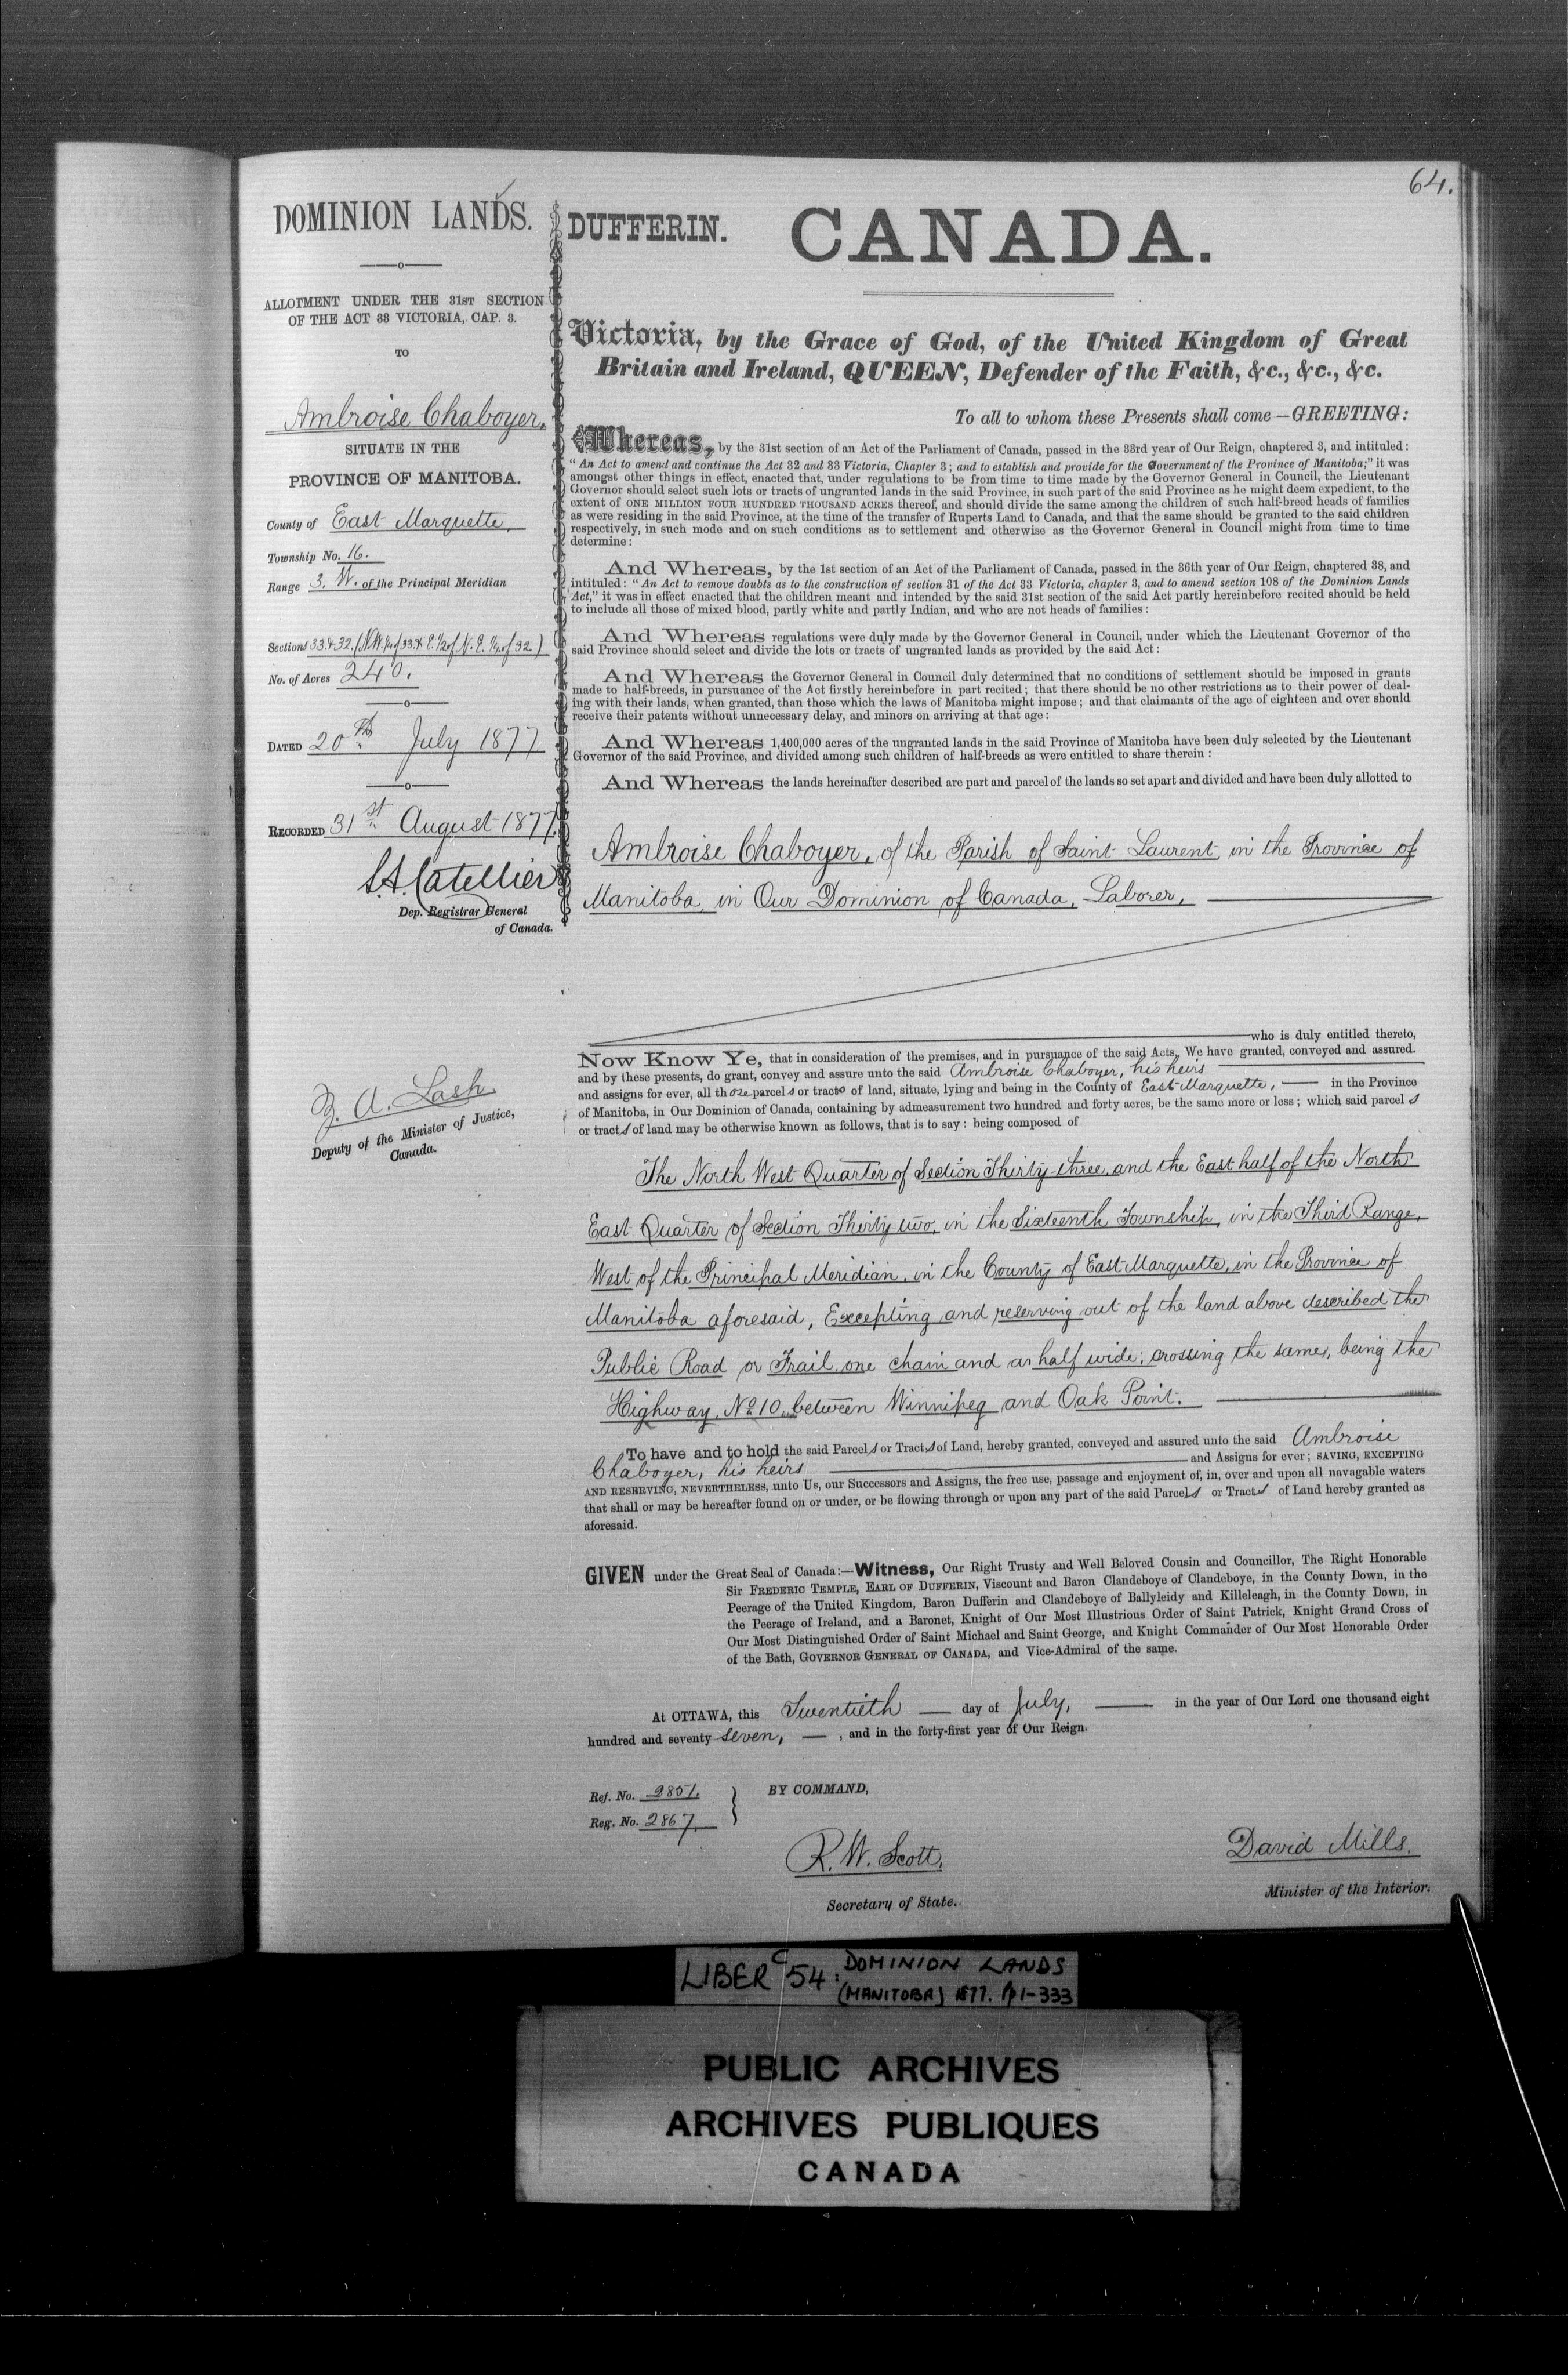 64.
DOMINION LANDS.
ALLOTMENT UNDER THE 31ST SECTION
OF THE ACT 33 VICTORIA, CAP. 3.
TO
Ambroise Chaboyer,
SITUATE IN THE
PROVINCE OF MANITOBA.
County of East Marquette,
Township No. 16.
Range 3. W. of the Principal Meridian
Sections 33 & 32. (N.W. 1/4 of 33. & E. 1/2 of N. E. 1/4 of 32.)
No. of Acres 240.
DATED 20th July 1877
RECORDED 31st August 1877.
L.A. Catellier
Dep. Registrar General
of Canada.
Z. A. Lash.
Deputy of the Minister of Justice,
Canada.
DUFFERIN. CANADA.
Victoria, by the Grace of God, of the United Kingdom of Great
Britain and Ireland, QUEEN, Defender of the Faith, &c., &c., &c.
To all to whom these Presents shall come—GREETING:
Whereas, by the 31st section of an Act of the Parliament of Canada, passed in the 33rd year of Our Reign, chaptered 3, and intituled:
"An Act to amend and continue the Act 32 and 33 Victoria, Chapter 3; and to establish and provide for the Government of the Province of Manitoba;" it was
amongst other things in effect, enacted that, under regulations to be from time to time made by the Governor General in Council, the Lieutenant
Governor should select such lots or tracts of ungranted lands in the said Province, in such part of the said Province as he might deem expedient, to the
extent of ONE MILLION FOUR HUNDRED THOUSAND ACRES thereof, and should divide the same among the children of such half-breed heads of families
as were residing in the said Province, at the time of the transfer of Ruperts Land to Canada, and that the same should be granted to the said children
respectively, in such mode and on such conditions as to settlement and otherwise as the Governor General in Council might from time to time
determine:
And Whereas, by the 1st section of an Act of the Parliament of Canada, passed in the 36th year of Our Reign, chaptered 38, and
intituled: "An Act to remove doubts as to the construction of section 31 of the Act 33 Victoria, chapter 3, and to amend section 108 of the Dominion Lands
Act," it was in effect enacted that the children meant and intended by the said 31st section of the said Act partly hereinbefore recited should be held
to include all those of mixed blood, partly white and partly Indian, and who are not heads of families:
And Whereas regulations were duly made by the Governor General in Council, under which the Lieutenant Governor of the
said Province should select and divide the lots or tracts of ungranted lands as provided by the said Act:
And Whereas the Governor General in Council duly determined that no conditions of settlement should be imposed in grants
made to half-breeds, in pursuance of the Act firstly hereinbefore in part recited; that there should be no other restrictions as to their power of deal-
ing with their lands, when granted, than those which the laws of Manitoba might impose; and that claimants of the age of eighteen and over should
receive their patents without unnecessary delay, and minors on arriving at that age:
And Whereas 1,400,000 acres of the ungranted lands in the said Province of Manitoba have been duly selected by the Lieutenant
Governor of the said Province, and divided among such children of half-breeds as were entitled to share therein:
And Whereas the lands hereinafter described are part and parcel of the lands so set apart and divided and have been duly allotted to
Ambroise Chaboyer, of the Parish of Saint Laurent, in the Province of
Manitoba, in Our Dominion of Canada, Laborer,
who is duly entitled thereto,
Now Know Ye, that in consideration of the premises, and in pursuance of the said Acts, We have granted, conveyed and assured.
and by these presents, do grant, convey and assure unto the said Ambroise Chaboyer, his heirs
and assigns for ever, all those parcels or tracts of land, situate, lying and being in the County of East Marquette, in the Province
of Manitoba, in Our Dominion of Canada, containing by admeasurement two hundred and forty acres, be the same more or less; which said parcels
or tracts of land may be otherwise known as follows, that is to say: being composed of
The North West Quarter of Section Thirty-three, and the East half of the North
East Quarter of Section Thirty-two, in the Sixteenth Township, in the Third Range,
West of the Principal Meridian, in the County of East Marquette, in the Province of
Manitoba aforesaid, Excepting and reserving out of the land above described the
Public Road or Trail, one chain and a half wide, crossing the same, being the
Highway, No 10, between Winnipeg and Oak Point.
To have and to hold the said Parcels or Tracts of Land, hereby granted, conveyed and assured unto the said Ambroise
Chaboyer, his heirs and Assigns for ever; SAVING, EXCEPTING
AND RESERVING, NEVERTHELESS, unto Us, our Successors and Assigns, the free use, passage and enjoyment of, in, over and upon all navagable waters
that shall or may be hereafter found on or under, or be flowing through or upon any part of the said Parcels or Tracts of Land hereby granted as
aforesaid.
GIVEN under the Great Seal of Canada:—Witness, Our Right Trusty and Well Beloved Cousin and Councillor, The Right Honorable
Sir FREDERIC TEMPLE, EARL OF DUFFERIN, Viscount and Baron Clandeboye of Clandeboye, in the County Down, in the
Peerage of the United Kingdom, Baron Dufferin and Clandeboye of Ballyleidy and Killeleagh, in the County Down, in
the Peerage of Ireland, and a Baronet, Knight of Our Most Illustrious Order of Saint Patrick, Knight Grand Cross of
Our Most Distinguished Order of Saint Michael and Saint George, and Knight Commander of Our Most Honorable Order
of the Bath, GOVERNOR GENERAL OF CANADA, and Vice-Admiral of the same.
At OTTAWA, this Twentieth day of July, in the year of Our Lord one thousand eight
hundred and seventy-seven, , and in the forty-first year of Our Reign.
Ref. No. 2851.
Reg. No. 2867.
BY COMMAND,
R. W. Scott,
Secretary of State.
David Mills.
Minister of the Interior.
LIBER C 54: DOMINION LANDS
(MANITOBA) 1877. pp 1-333
PUBLIC ARCHIVES
ARCHIVES PUBLIQUES
CANADA